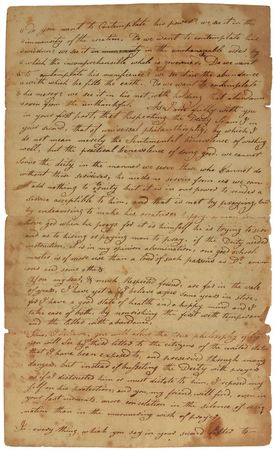 Do we want to Contemplate his power? we see it in the
immensity of the creation. Do we want to contemplate his
wisdom? we see it in the unchangeable order by
which the incomprehensible whole is governed. Do we want
to contemplate his munificence? we see it in the abundance
with which he fills the earth. Do we want to contemplate
his mercy? we see it in his not with
even from the unthankful.
in your first part, that respecting the Deity
your second, that of universal philanthropy, by which I
do not mean merely the Sentimental benevolence of wishing
well, but the practical benevolence of doing good. we cannot
serve the deity in the manner we serve those who cannot do
without that service. he needs no service from us. we can
add nothing to eternity but it is in our power to render a
service acceptable to him, and that is not by praying, but
by endeavouring to make his creatures
God when he prays for it is himself he is trying to serve
and as to hiring or paying men to pray, as if the Deity needed
instruction it is in my opinion abomination. one good school
master is of more use than a load of such parsons as Dr.
and some others
You and I, my much respected friend, are far in the vale
of years. I have yet I believe some years in store
for I have a good state of health and a happy mind and I
take care of both, by nourishing the first with temperance
and the latter with abundance.
This I believe you will allow to be the true philosophy of
you will see by my third letter to the citizens of the united states
that I have been exposed to, and preserved through many
dangers, but instead of buffetting the Deity with prayers
as if I distrusted him or must dictate to him, I reposed my
self on his protection; and you, my friend will find, even in
your last moments, more consolation in the silence of resig
nation than in the murmuring wish of prayer.
In every thing, which you say in your second letter to